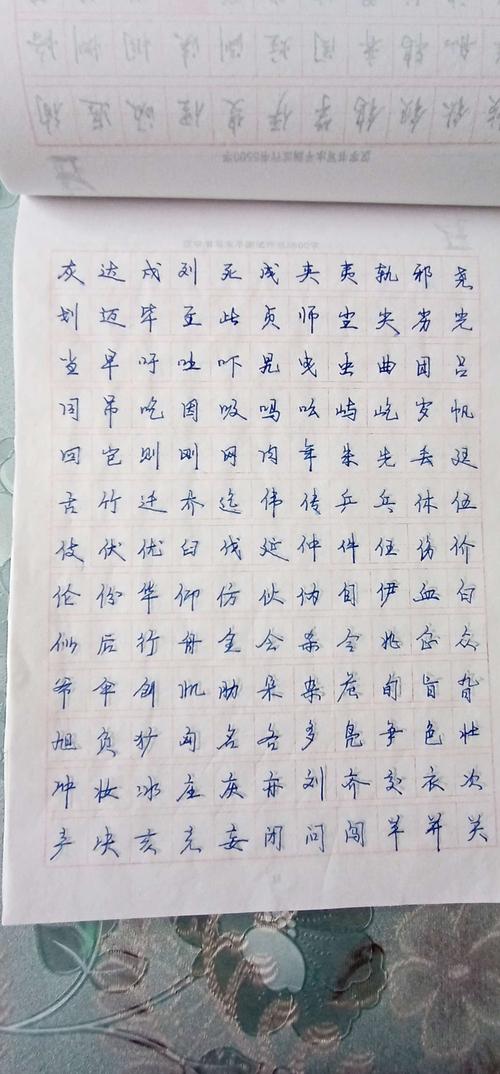 灰 达 戍 列 死 成 夹 夷 轨 邪 尧
划 迈 毕 至 此 贞 师 尘 尖 劣 光
当 早 吁 吐 吓 晃 曳 虫 曲 团 吕
同 吊 吃 因 吸 吗 吆 屿 屹 岁 帆
回 则 刚 网 肉 年 朱 先 丢 廷
舌 竹 迁 乔 迄 伟 传 乒 乓 休 伍
伎 伏 优 臼 伐 延 仲 件 任 伤 价
伦 份 华 仰 仿 伙 伪 自 伊 血 向
似 后 行 舟 全 会 杀 合 兆 企 众
爷 伞 创 肌 肋 朵 杂 危 旬 旨
旭 负 犷 匈 名 各 多 争 色 壮
冲 妆 冰 庄 亦 刘 齐 交 衣 次
产 决 亥 充 妄 闭 问 闯 羊 并 关